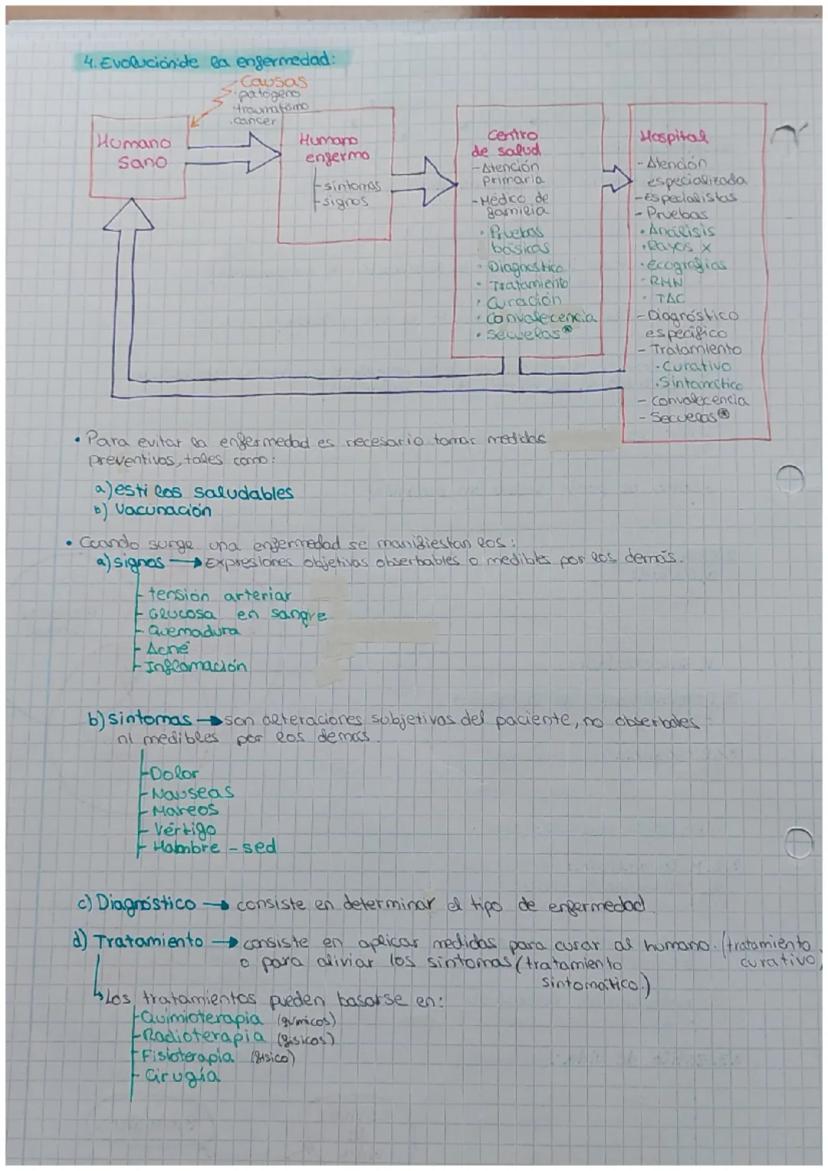 4. Evolución de la enfermedad:
Causas
· patógeno
· traumatismo
· cancer
Humano
sano
Humano
enfermo
- síntomas
- signos
Centro
de salud
- Atención
primaria
- Médico de
familia
· Pruebas
básicas
· Diagnostico
· Tratamiento
· Curación
· Convalecencia
· Secuelas*
Hospital
- Atención
especializada
- Especialistas
- Pruebas
· Análisis
· Rayos X
· ecografías
· RMN
· TAC
- Diagnóstico
específico
- Tratamiento
· Curativo
· Sintomático
- Convalecencia
- Secuelas*
• Para evitar la enfermedad es necesario tomar medidas
preventivas, tales como:
a) estilos saludables
b) Vacunación
• Cuando surge una enfermedad se manifiestan los:
a) signos → Expresiones objetivas obserbables o medibles por los demás.
- tensión arteriar
- Glucosa en sangre
- Quemadura
- Acné
- Inflamación
b) Sintomas → son alteraciones subjetivas del paciente, no obserbales
ni medibles por los demás.
- Dolor
- Nauseas
- Mareos
- Vértigo
- Hambre - sed
c) Diagnóstico → consiste en determinar el tipo de enfermedad
d) Tratamiento → consiste en aplicar medidas para curar al humano. (tratamiento
curativo)
o para aliviar los síntomas (tratamiento
sintomático.)
↳ Los tratamientos pueden basarse en:
- Quimioterapia (químicos)
- Radioterapia (físicos)
- Fisioterapia (físico)
- Cirugía